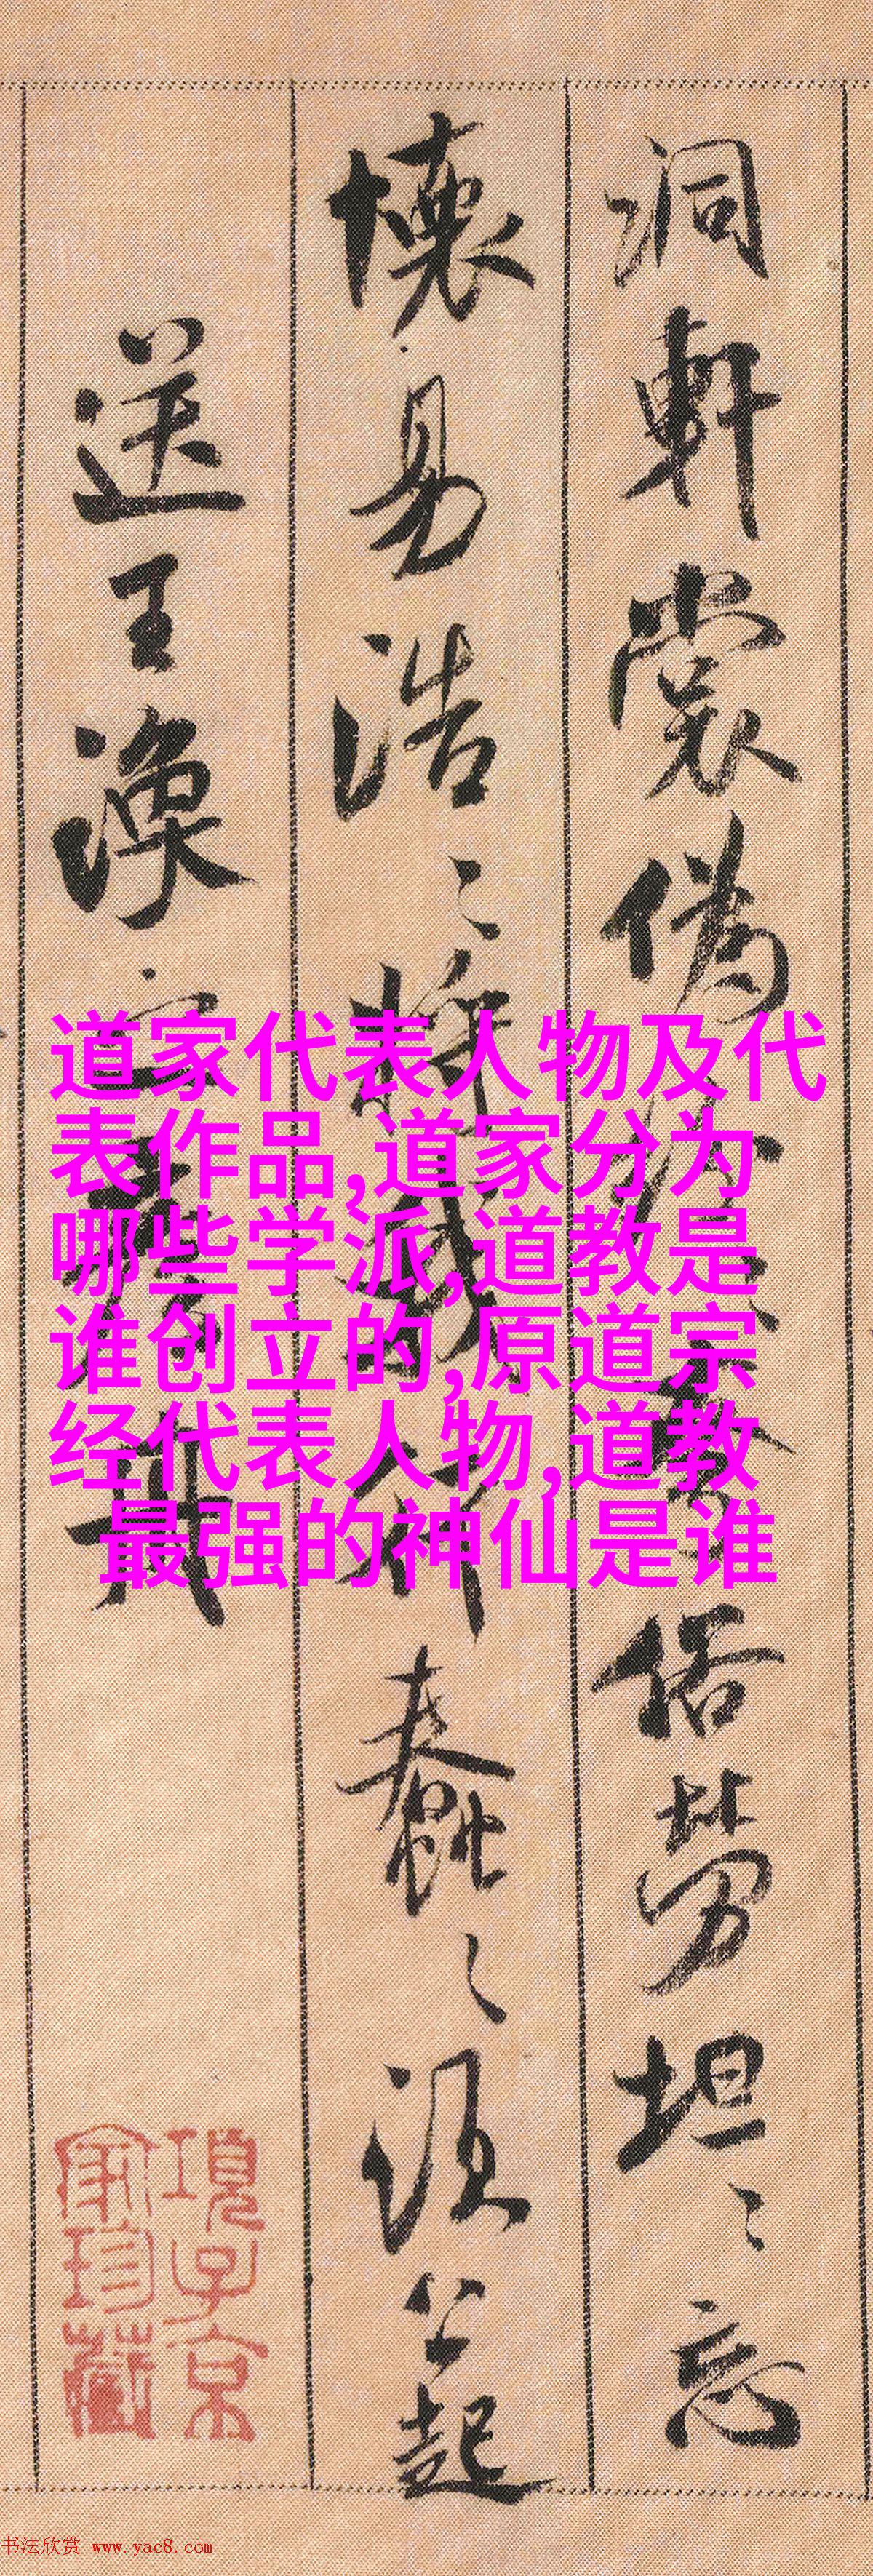 洞軒裳偽俗勞坦〻忘
懷易浩〻將我行蠢〻語公起
送王渙之彥舟
項子京
家珍藏
道家代表人物及代
表作品,道家分为
哪些学派,道教是
谁创立的,原道宗
经代表人物,道教
最强的神仙是谁
书法欣赏 www.yac8.com